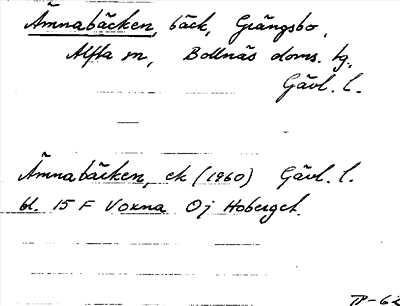 Ämnabäcken, bäck, Grängsbo,
Alfta sn, Bollnäs doms. tg.
Gävl. l.
Ämnabäcken, ek (1960) Gävl. l.
bl. 15 F Voxna Öj Hoberget.
TP-62